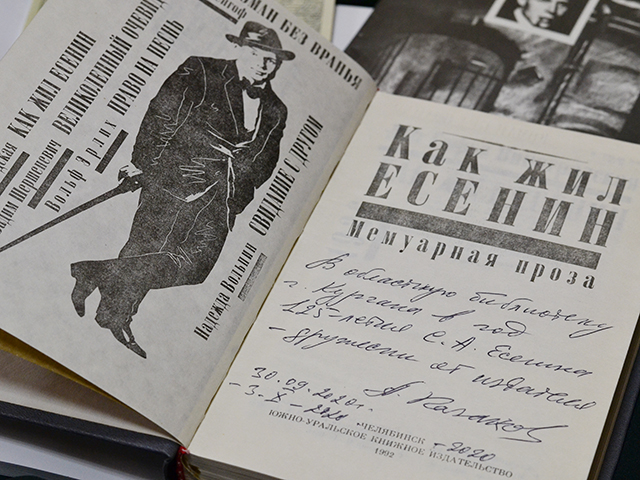 ОМАН БЕЗ ВРАНЬЯ
нгоф
ская КАК ЖИЛ ЕСЕНИН
дим Шершеневич ВЕЛИКОЛЕПНЫЙ ОЧЕВИД
Вольф Эрлих ПРАВО НА ПЕСНЬ
Надежда Вольпин СВИДАНИЕ С ДРУГОМ
КАК ЖИЛ
ЕСЕНИН
Мемуарная проза
В областную библиотеку
г. Кургана в год
125-летия С. А. Есенина
- дружески от издателя
30.09.2020г. А. Казаков
- 3. X - 2020 - 2020
ЧЕЛЯБИНСК
ЮЖНО-УРАЛЬСКОЕ КНИЖНОЕ ИЗДАТЕЛЬСТВО
1992